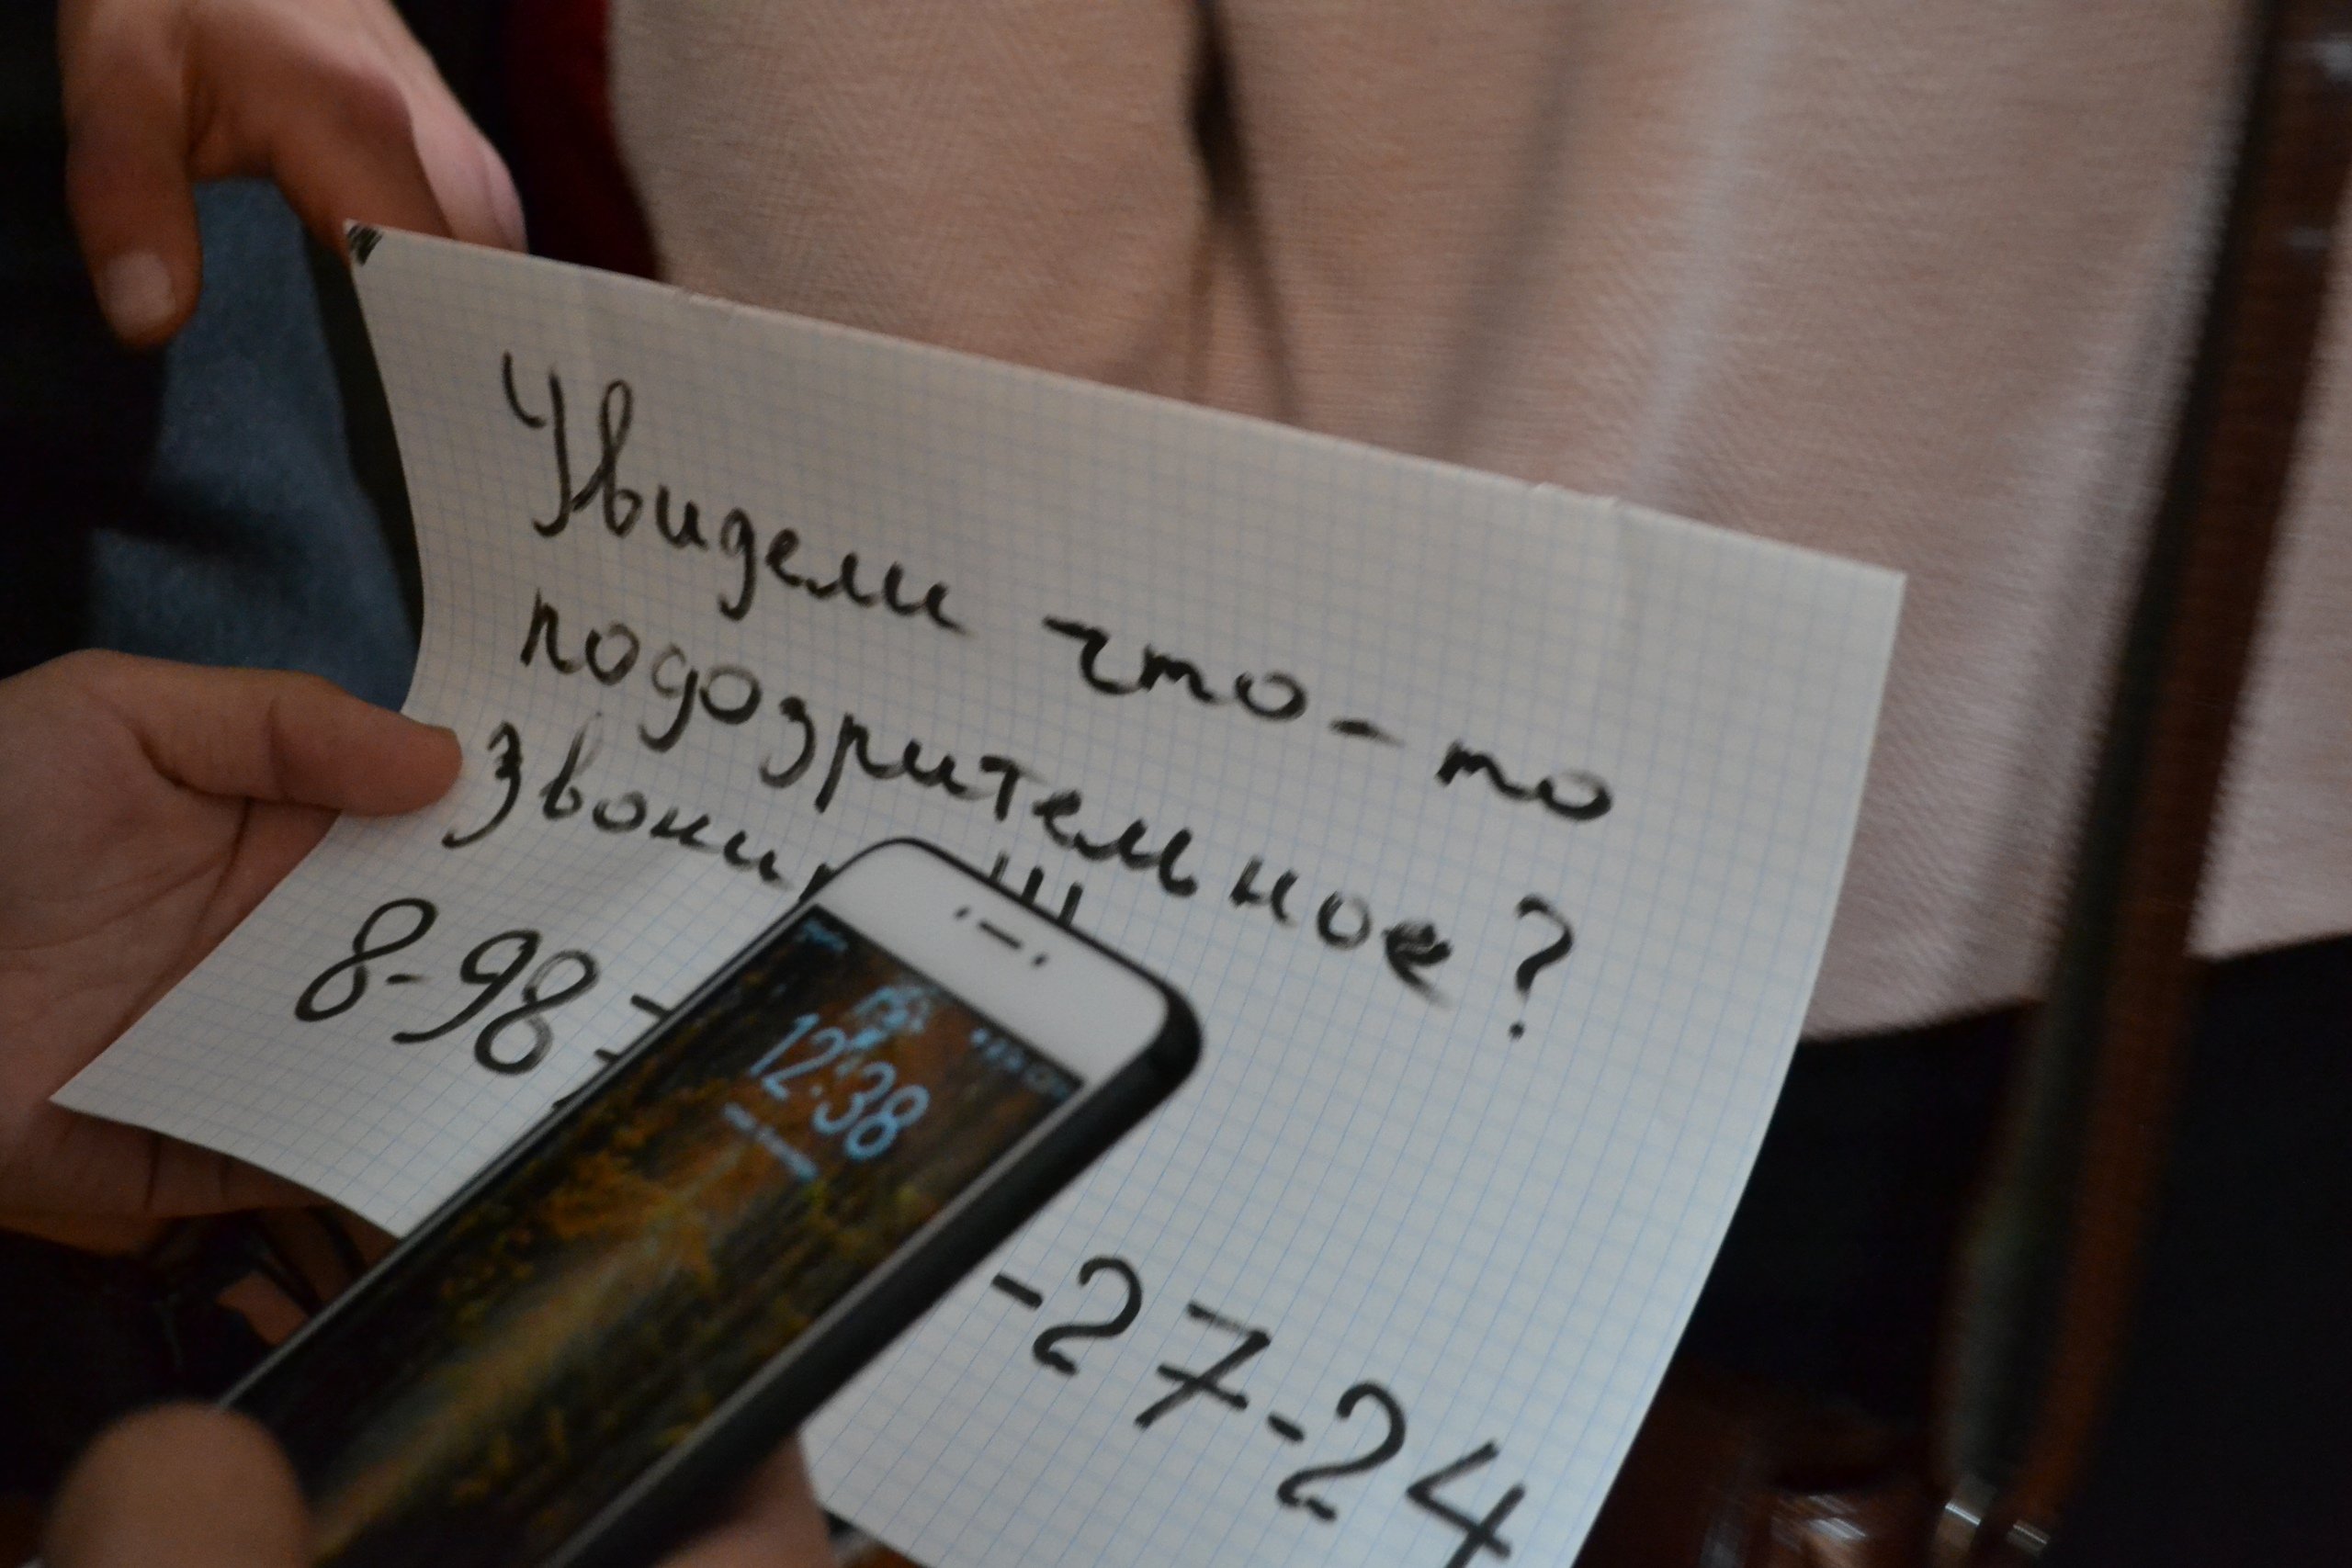 Увидели что-то
подозрительное?
Звони !!!
8-987
-27-24
12:38